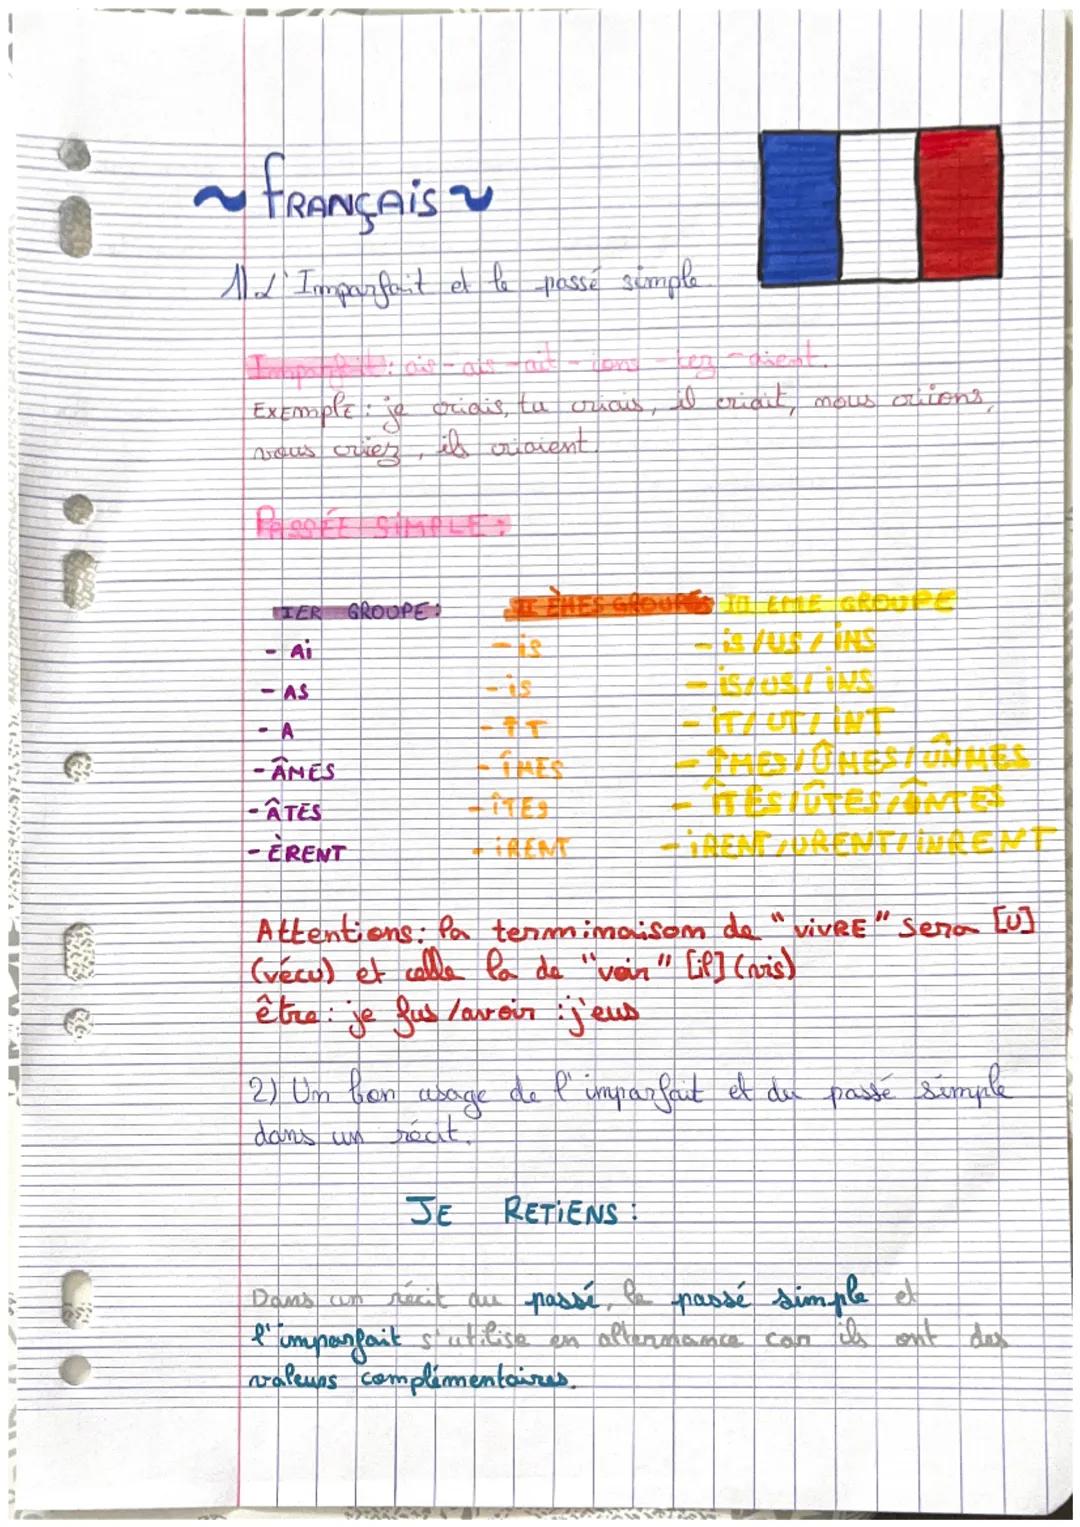 ~ FRANÇAIS ~
1) L'Imparfait et le passé simple.
Imparfait : ais - ais - ait - ions - iez - aient.
EXEMPLE : je criais, tu criais, il criait, nous criions,
vous criez, ils criaient.
PASSÉE SIMPLE :
IER GROUPE : II ÈMES GROUPES III EME GROUPE
- Ai - is - is / US / iNS
- AS - is - iS / US / iNS
- A - îT - iT / UT / iNT
- ÂMES - îMES - ÎMES / ÛMES / ÛNMES
- ÂTES - îTES - îTES / ÛTES / ÎNTES
- ÈRENT - iRENT - iRENT / URENT / iNRENT
Attentions : la terminaison de "vivRE" sera [U]
(vécu) et celle la de "voir" [il] (vis)
être : je fus / avoir : j'eus
2) Un bon usage de l'imparfait et du passé simple
dans un récit.
JE RETiENS :
Dans un récit au passé, le passé simple et
l'imparfait s'utilise en alternance car ils ont des
valeurs complémentaires.